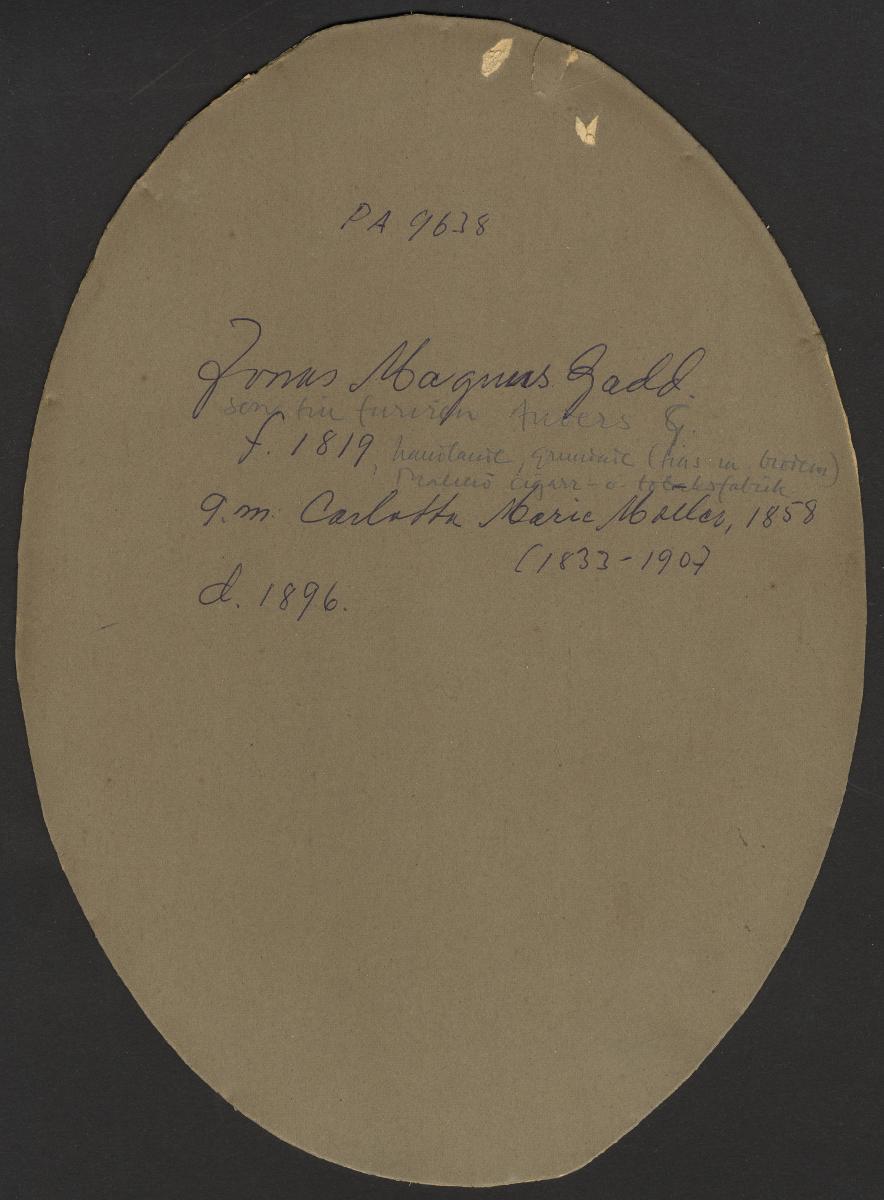 PA 9638
Jonas Magnus Gadd.
son till furiren Anders G.
f. 1819, handlande, grundade (tills. m. brodern)
Malmö cigarr- o tobaksfabrik
g. m. Carlotta Marie Møller, 1858
(1833-1907
d. 1896.